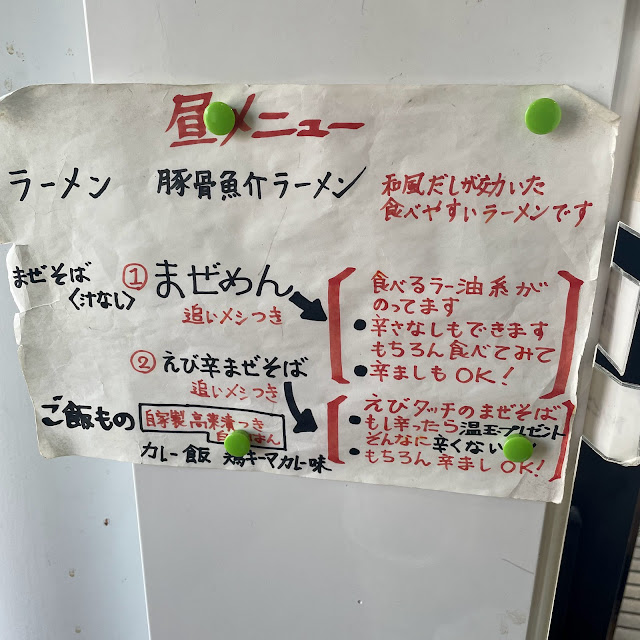 昼メニュー
ラーメン 豚骨魚介ラーメン
和風だしが効いた
食べやすいラーメンです
まぜそば
〈汁なし〉
① まぜめん
追いメシつき
食べるラー油系が
のってます
●辛さなしもできます
もちろん食べてみて
●辛ましもOK!
② えび辛まぜそば
追いメシつき
●えびタッチのまぜそば
もし辛ったら温玉プレゼント
そんなに辛くない
●もちろん辛ましOK!
ご飯もの
自家製高菜漬つき
カレー飯 鶏キーマカレー味